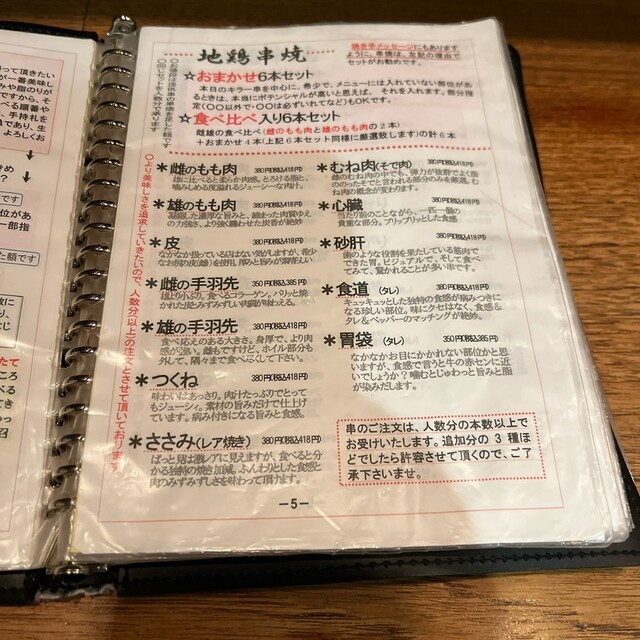 地鶏串焼
焼き手メッセージにもあります
ように、串焼は、左記の理由で
セットがお勧めです。
☆おまかせ6本セット
本日のキラー串を中心に、希少で、メニューには入れていない部位があ
るときは、本当にポテンシャルが高いと思えば、それを入れます。部分指
定(〇〇以外で〇〇は必ずいれてなど)もOKです。
☆食べ比べ入り6本セット
雌雄の食べ比べ(雌のもも肉と雄のもも肉の2本)
+おまかせ4本(上記6本セット同様に厳選致します)の計6本
〇より美味しさを追求していきたいので、人数分以上の注文とさせて頂いております。
*雌のもも肉 380円(税込418円)
雄に比べると柔らか肉感。とろける脂と、
噛みしめる度溢れるジューシーな肉汁。
*雄のもも肉 380円(税込418円)
凝縮した濃厚な旨みと、締まった肉質ゆえ
の力強さ、より強く纏わせた炭香が絶妙
*皮 380円(税込418円)
なかなか扱っている店はない気がしますが、希少
なお尻の皮(雄)を使用。厚みと旨みが素晴らしい
*雌の手羽先 350円(税込385円)
雄より小ぶり。食べるコラーゲン。パリッと焼
かれた皮とみずみずしい肉質が味える。
*雄の手羽先 380円(税込418円)
食べ応えのある大きさ。身厚で、より肉
感が強い。雌もですけど、ホイル部分も
外して、隅々まで食べつくして下さい。
*つくね 380円(税込418円)
味わいはあっさり。肉汁たっぷりでとって
もジューシィ。素材の旨みだけで仕上げ
ています。病み付きになる旨みと食感。
*ささみ(レア焼き) 380円(税込418円)
ぱっと見は激レアに見えますが、食べると分
かる独特の焼き加減。ふんわりとした食感と
肉のみずみずしさを味わって頂けます。
*むね肉(そで肉) 380円(税込418円)
雌のむね肉の中でも、弾力が抜群でよく脂
ののったそでと言われる部分のみを厳選。む
ね肉の概念が変わります。
*心臓 380円(税込418円)
当たり前のことながら、一匹一個の
貴重な部分。プリップリッとした食感
*砂肝 380円(税込418円)
歯のような役割を果たしている筋肉で
できた胃。ビジュアルで、そして食べ
てみて、驚かれることが多い串です。
*食道(タレ) 380円(税込418円)
キュッキュッとした独特の食感が病みつきに
なる珍しい部位。味にクセはなく、食感&
タレ&ペッパーのマッチングが絶妙。
*胃袋(タレ) 350円(税込385円)
なかなかお目にかかれない部位かと思
いますが、食感で言うと牛の赤センに近
いでしょうか?噛むとじゅわっと旨みと脂
が染みだします。
串のご注文は、人数分の本数以上で
お受けいたします。追加分の3種ほ
どでしたら許容させて頂くので、ご了
承下さいませ。
-5-